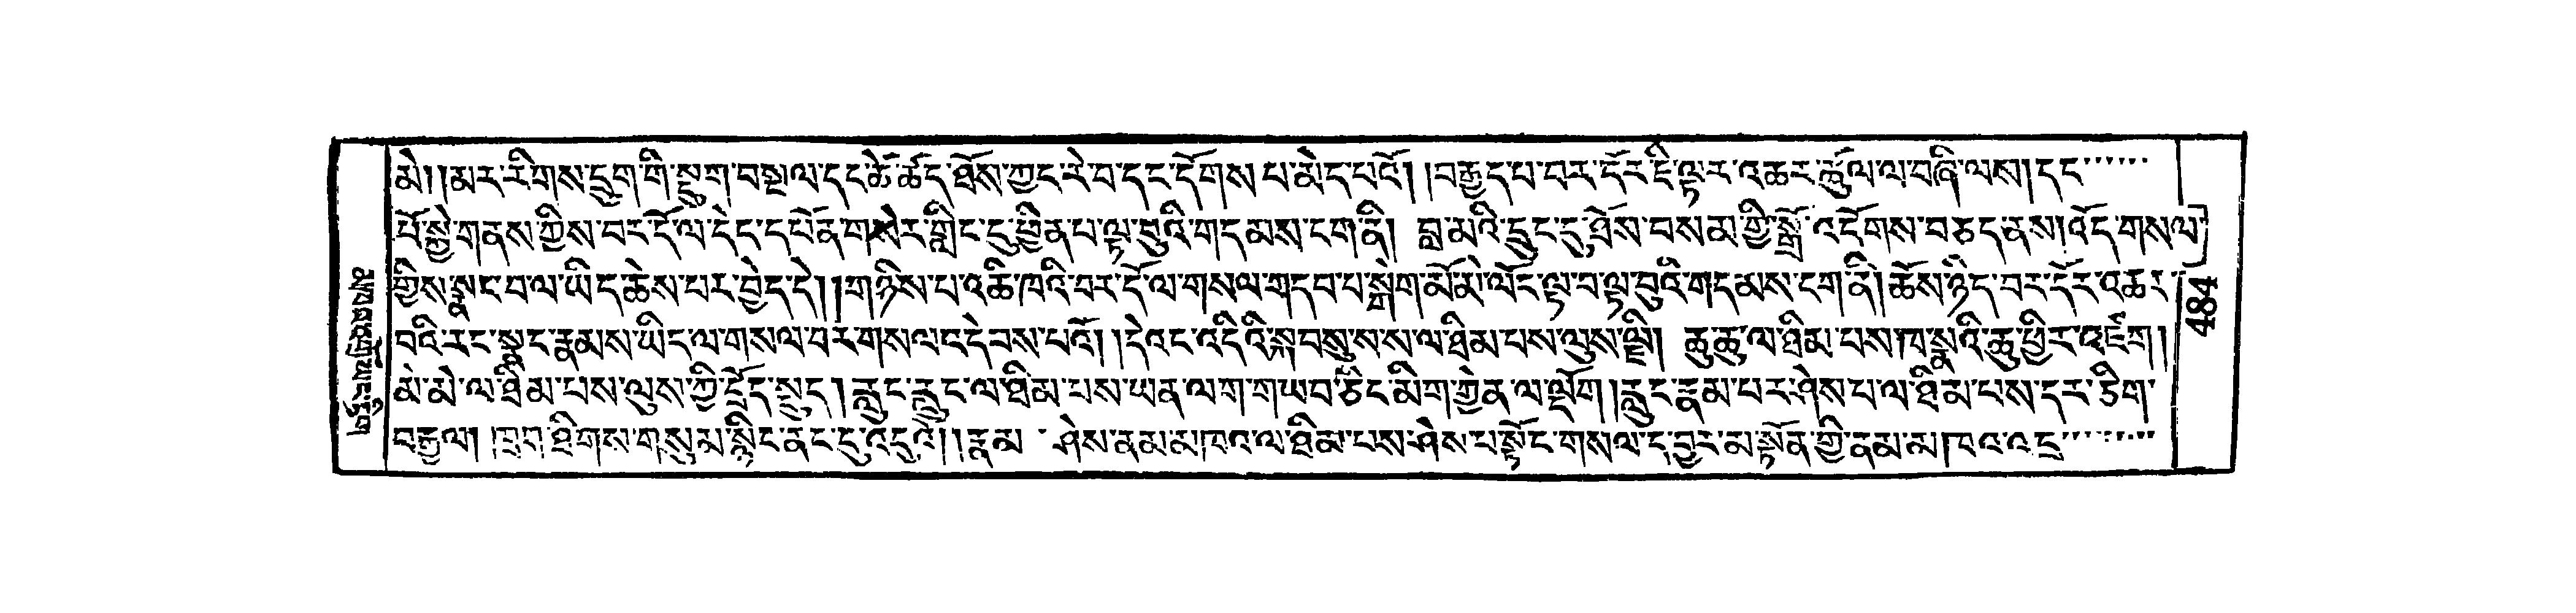 མེ། །མར་རིགས་དྲུག་གི་སྡུག་བསྔལ་དང་ཚེ་ཚད་ཐོས་ཀྱང་རེ་བ་དང་དོགས་པ་མེད་པའོ། །བརྒྱད་པ་བར་དོར་ཇི་ལྟར་འཆར་ཚུལ་ལ་བཞི་ལས། དང
པོ་སྐྱེ་གནས་ཀྱིས་བར་དོ་ལ་དེད་དཔོན་གསེར་གླིང་དུ་ཕྱིན་པ་ལྟ་བུའི་གདམས་ངག་ནི། བླ་མའི་དྲུང་དུ་ཐོས་བསམ་གྱི་སྒྲོ་འདོགས་བཅད་ནས། འོད་གསལ
གྱིས་སྣང་བ་ལ་ཡིད་ཆེས་པར་བྱེད་དེ། །གཉིས་པ་འཆི་ཁའི་བར་དོ་ལ་གསལ་གདབ་པ་སྒེག་མོ་མེ་ལོང་ལྟ་བ་ལྟ་བུའི་གདམས་ངག་ནི། ཆོས་ཉིད་བར་དོར་འཆར་
བའི་རང་སྣང་རྣམས་ཡིད་ལ་གསལ་བར་གསལ་འདེབས་པའོ། །དེའང་འདིའི་སྐབསུ་ས་ས་ལ་ཐིམ་པས་ལུས་ལྕི། ཆུ་ཆུ་ལ་ཐིམ་པས། ཁ་སྣའི་ཆུ་ཕྱིར་འཛག །
མེ་མེ་ལ་ཐིམ་པས་ལུས་ཀྱི་དྲོད་སྡུད། རླུང་རླུང་ལ་ཐིམ་པས་ཡན་ལག་གཡབ་ཅིང་མིག་གྱེན་ལ་ལྡོག །རླུང་རྣམ་པར་ཤེས་པ་ལ་ཐིམ་པས་དར་ཅིག་
བརྒྱལ། ཁྲག་ཐིགས་གསུམ་སྙིང་ནང་དུ་འདུའོ། །རྣམ་ཤེས་ནམ་མཁའ་ལ་ཐིམ་པས་ཤེས་པ་སྟོང་གསལ་ད་བྱར་མ་སྟོན་གྱི་ནམ་མཁའ་འདྲ
484